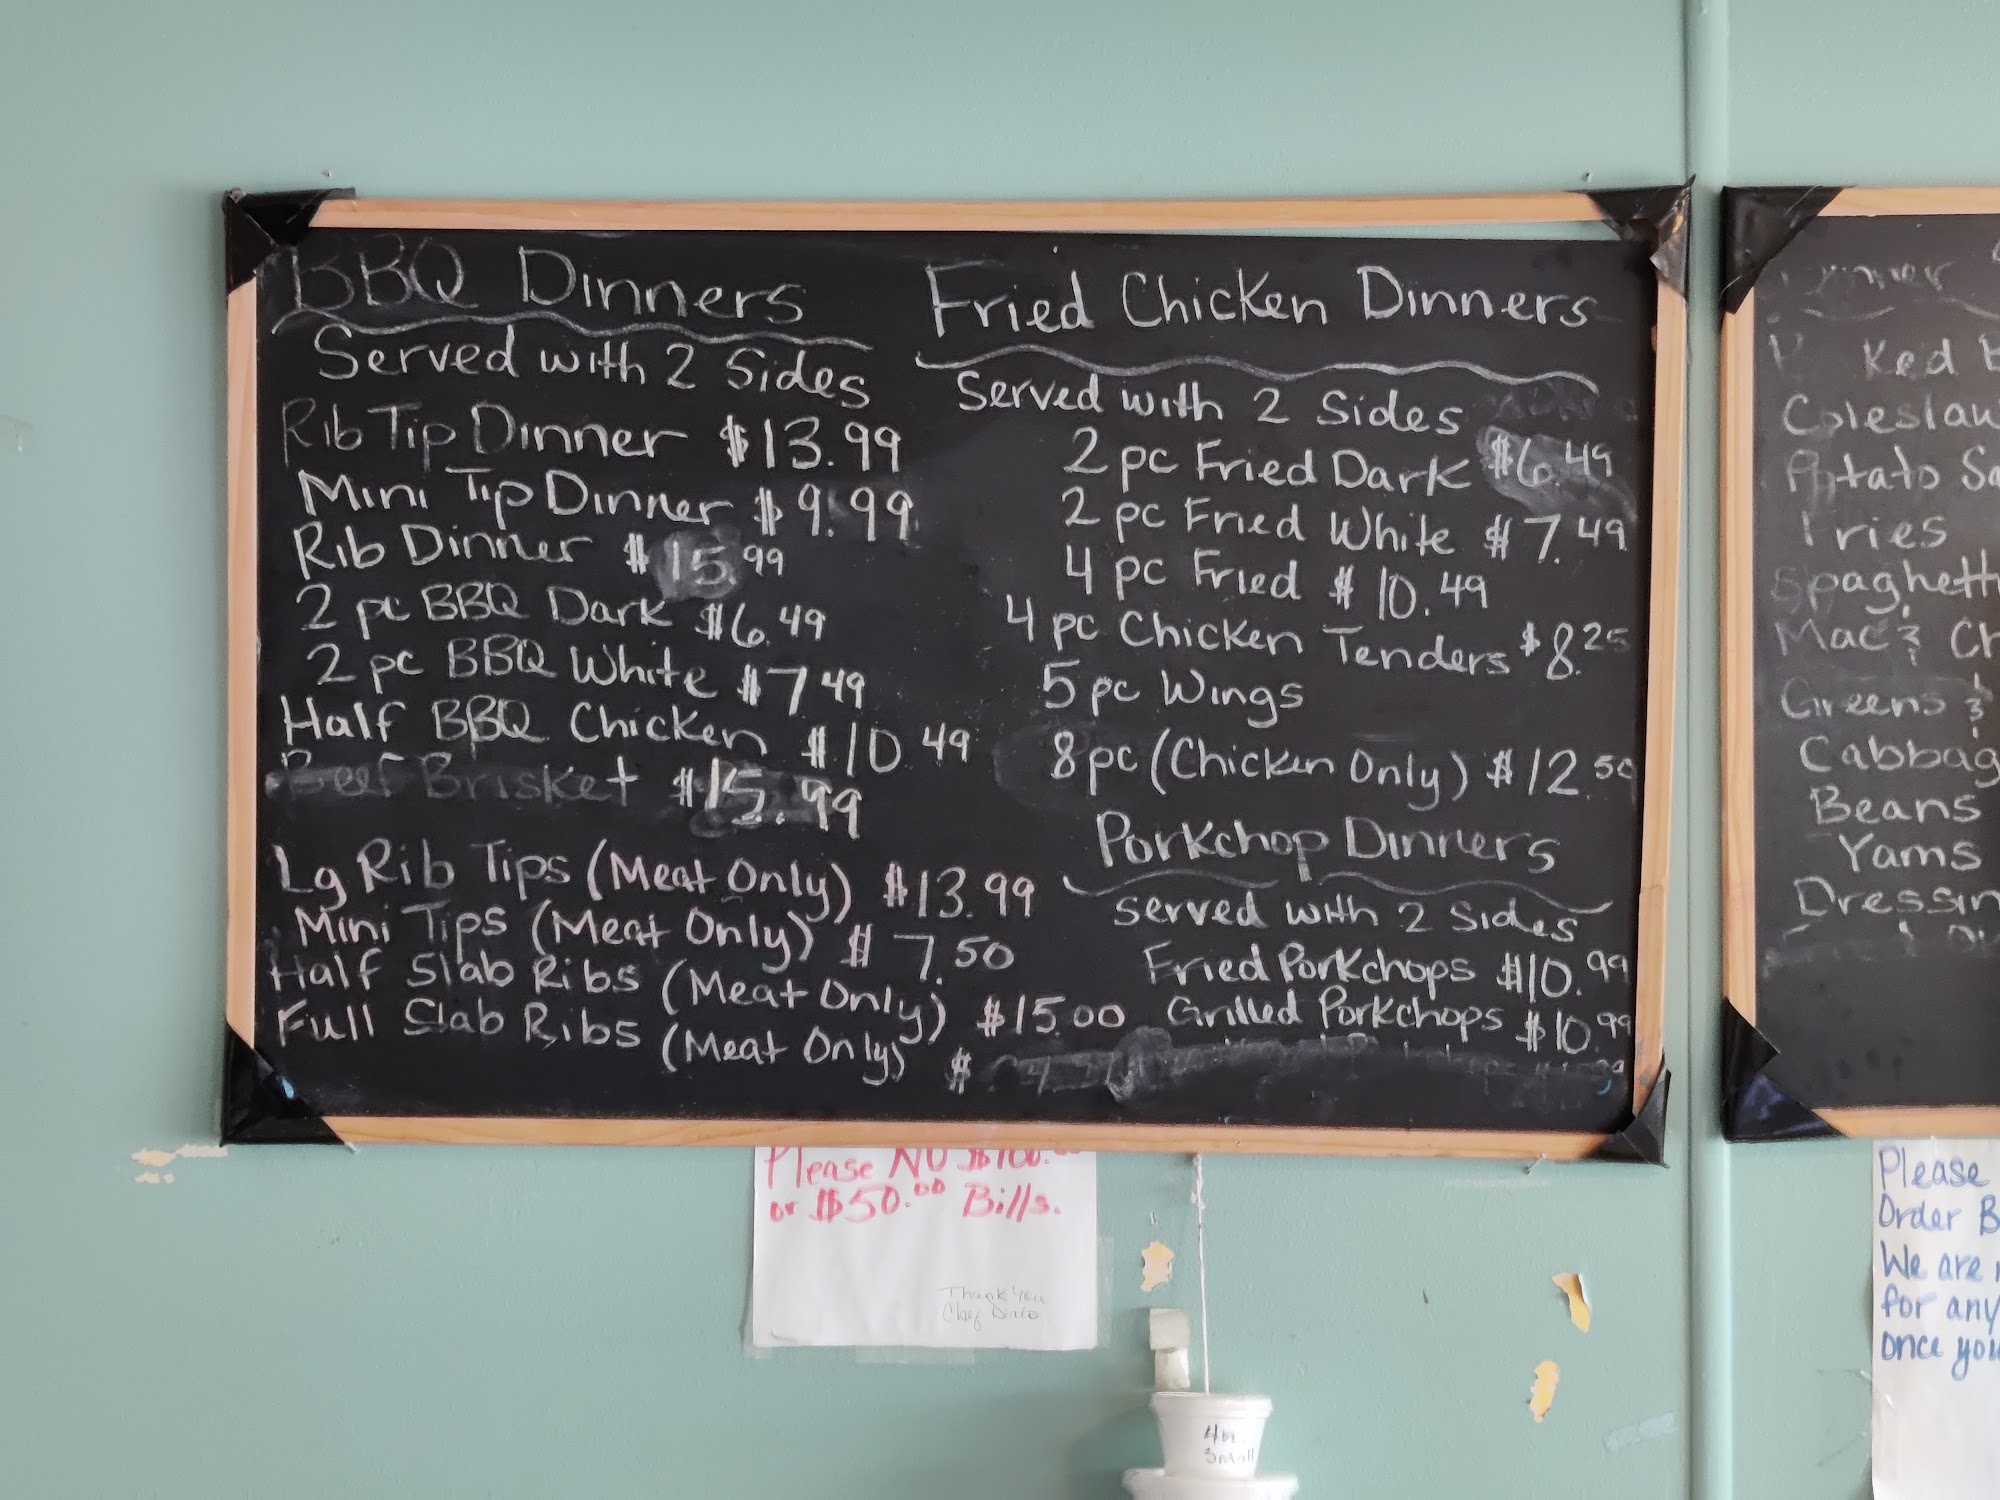 BBQ Dinners
Served with 2 Sides
Rib Tip Dinner $13.99
Mini Tip Dinner $9.99
Rib Dinner $15.99
2 pc BBQ Dark $6.49
2 pc BBQ White $7.49
Half BBQ Chicken $10.49
Beef Brisket $15.99
Lg Rib Tips (Meat Only) $13.99
Mini Tips (Meat Only) $7.50
Half Slab Ribs (Meat Only) $15.00
Full Slab Ribs (Meat Only) $
Fried Chicken Dinners
Served with 2 Sides
2 pc Fried Dark $6.49
2 pc Fried White $7.49
4 pc Fried $10.49
4 pc Chicken Tenders $8.25
5 pc Wings
8 pc (Chicken Only) $12.50
Porkchop Dinners
served with 2 Sides
Fried Porkchops $10.99
Grilled Porkchops $10.99
Coleslaw
Potato Sa
Fries
Spaghetti
Mac & Ch
Greens &
Cabbag
Beans
Yams
Dressin
Please NO $100.00
or $50.00 Bills.
Thank You
Please
Order B
We are
for any
once you
4oz.
Small